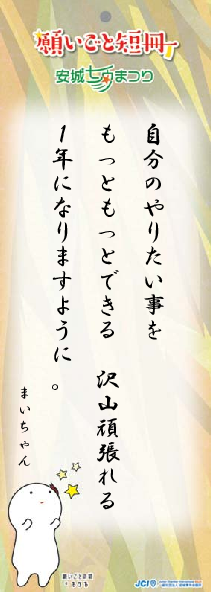 願いごと短冊
安城七夕まつり
自分のやりたい事を
もっともっとできる　沢山頑張れる
１年になりますように。
まいちゃん
願いごと短冊
JCI